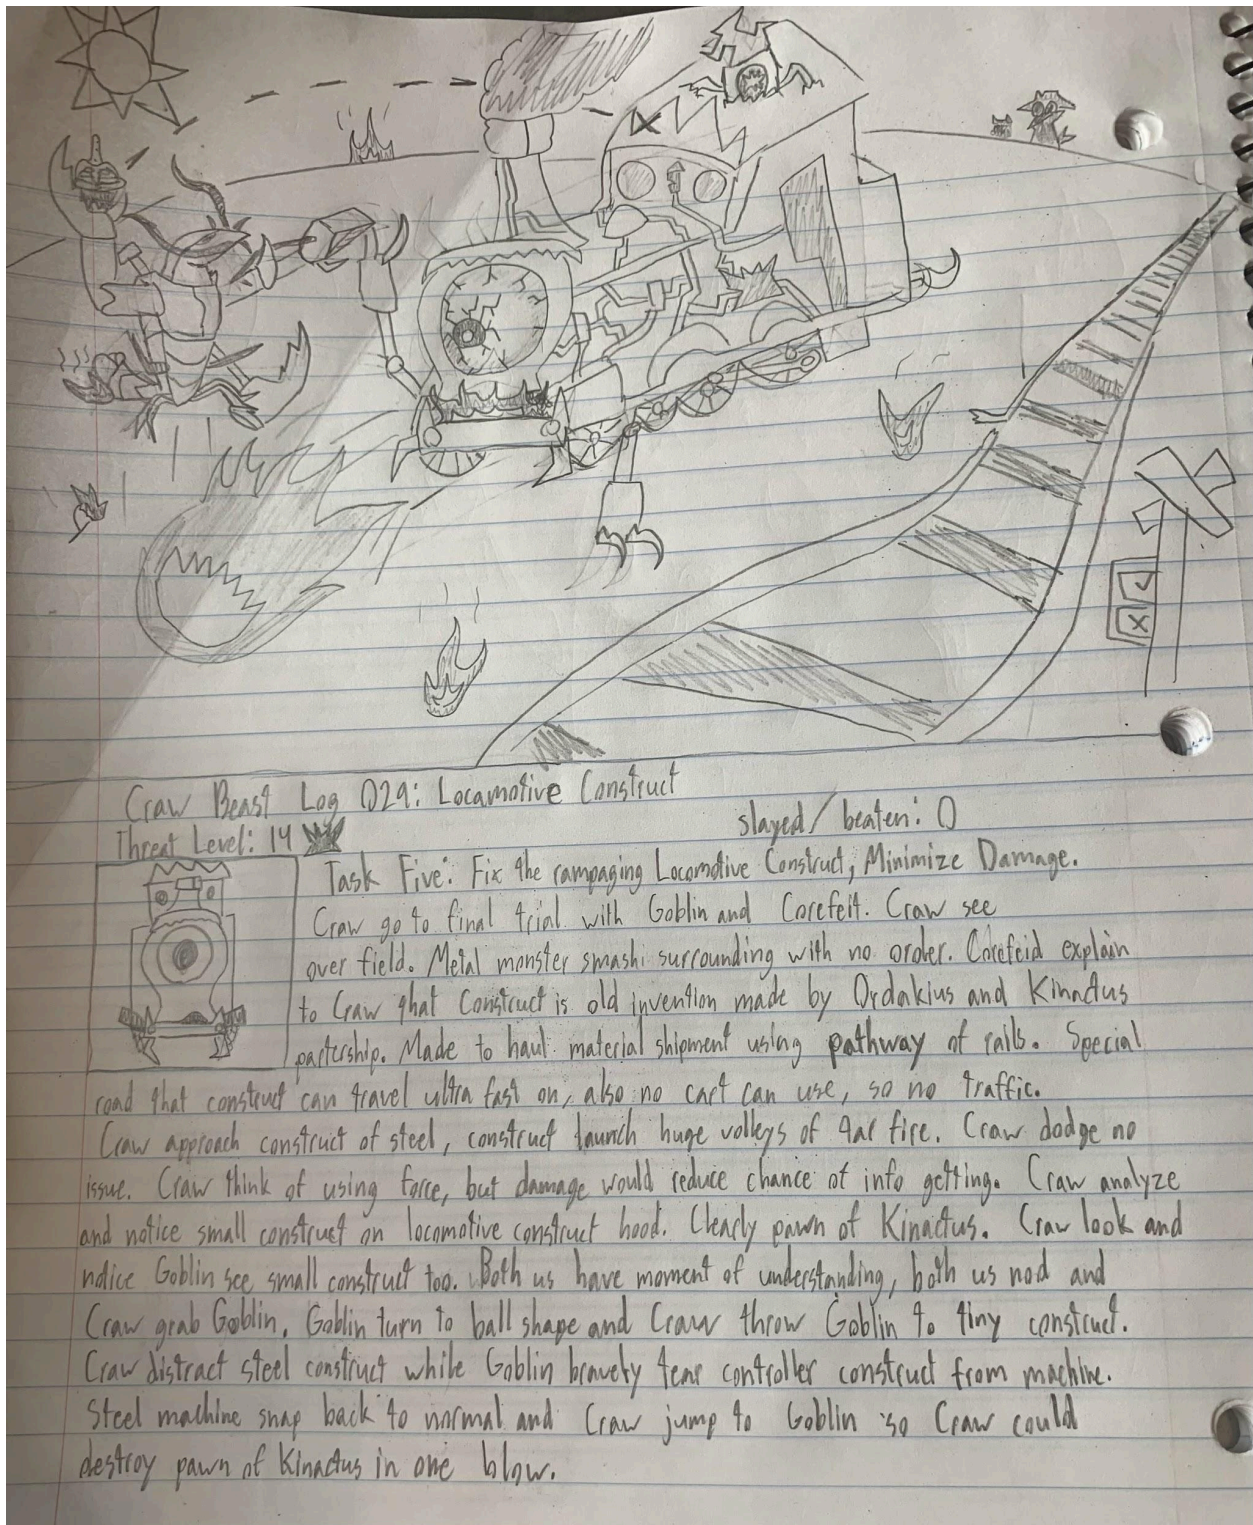 Craw Beast Log 029: Locamotive Construct
Threat Level: 14
slayed/ beaten: 0
Task Five: Fix the rampaging Locomotive Construct, Minimize Damage.
Craw go to final trial with Goblin and Corefeit. Craw see
over field. Metal monster smash surrounding with no order. Corefeid explain
to Craw that Construct is old invention made by Ordakius and Kinactus
partership. Made to haul material shipment using pathway of rails. Special
road that construct can travel ultra fast on, also no cart can use, so no traffic.
Craw approach construct of steel, construct launch huge volleys of tar fire. Craw dodge no
issue. Craw think of using force, but damage would reduce chance of info getting. Craw analyze
and notice small construct on locomotive construct hood. Clearly pawn of Kinactus. Craw look and
notice Goblin see small construct too. Both us have moment of understanding, both us nod and
Craw grab Goblin. Goblin turn to ball shape and Craw throw Goblin to tiny construct.
Craw distract steel construct while Goblin bravely tear controller construct from machine.
Steel machine snap back to normal and Craw jump to Goblin so Craw could
destroy pawn of Kinactus in one blow.